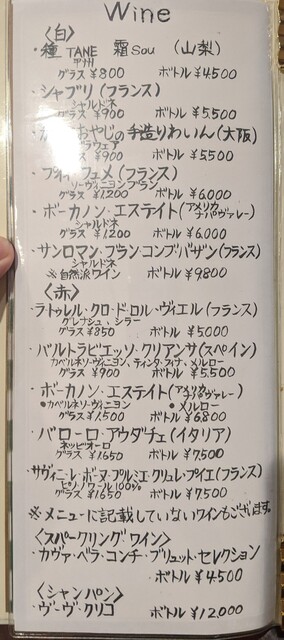 Wine
〈白〉
・種 TANE 霜 Sou (山梨)
甲州
グラス ¥800 ボトル ¥4500
・シャブリ (フランス)
シャルドネ
グラス ¥900 ボトル ¥5.500
おやじの手造りわいん(大阪)
デラウェア
¥900 ボトル ¥5500
・プイィ フュメ (フランス)
ソーヴィニヨンブラン
グラス ¥1.200 ボトル ¥6.000
・ボーカノン・エステイト(アメリカ ナパヴァレー)
シャルドネ
グラス ¥1200 ボトル ¥6.000
・サンロマン・ブラン・コンブバザン(フランス)
シャルドネ
※自然派ワイン ボトル ¥9800
〈赤〉
・ラトゥレル・クロ・ドロル・ヴィエル(フランス)
グレナシュ、シラー
グラス ¥850 ボトル ¥5.000
・バルトラビエッソ・クリアンサ(スペイン)
カベルネソーヴィニヨン、ティンタ・フィナ、メルロー
グラス ¥900 ボトル ¥5.500
・ボーカノン・エステイト(アメリカ ナパヴァレー)
●カベルネソーヴィニヨン ●メルロー
グラス ¥1.500 ボトル ¥6.800
・バローロ・アウダチェ(イタリア)
ネッビオーロ
グラス ¥1650 ボトル ¥7.500
・サヴィニ・レ・ボーヌ・プルミエ・クリュ・レ・プイエ(フランス)
ピノノワール100%
グラス ¥1650 ボトル ¥7500
※メニューに記載していないワインもございます。
〈スパークリングワイン〉
・カヴァ・ベラ・コンチ・ブリュット・セレクション
・ボトル ¥4500
〈シャンパン〉
・ヴーヴ・クリコ ボトル ¥12.000